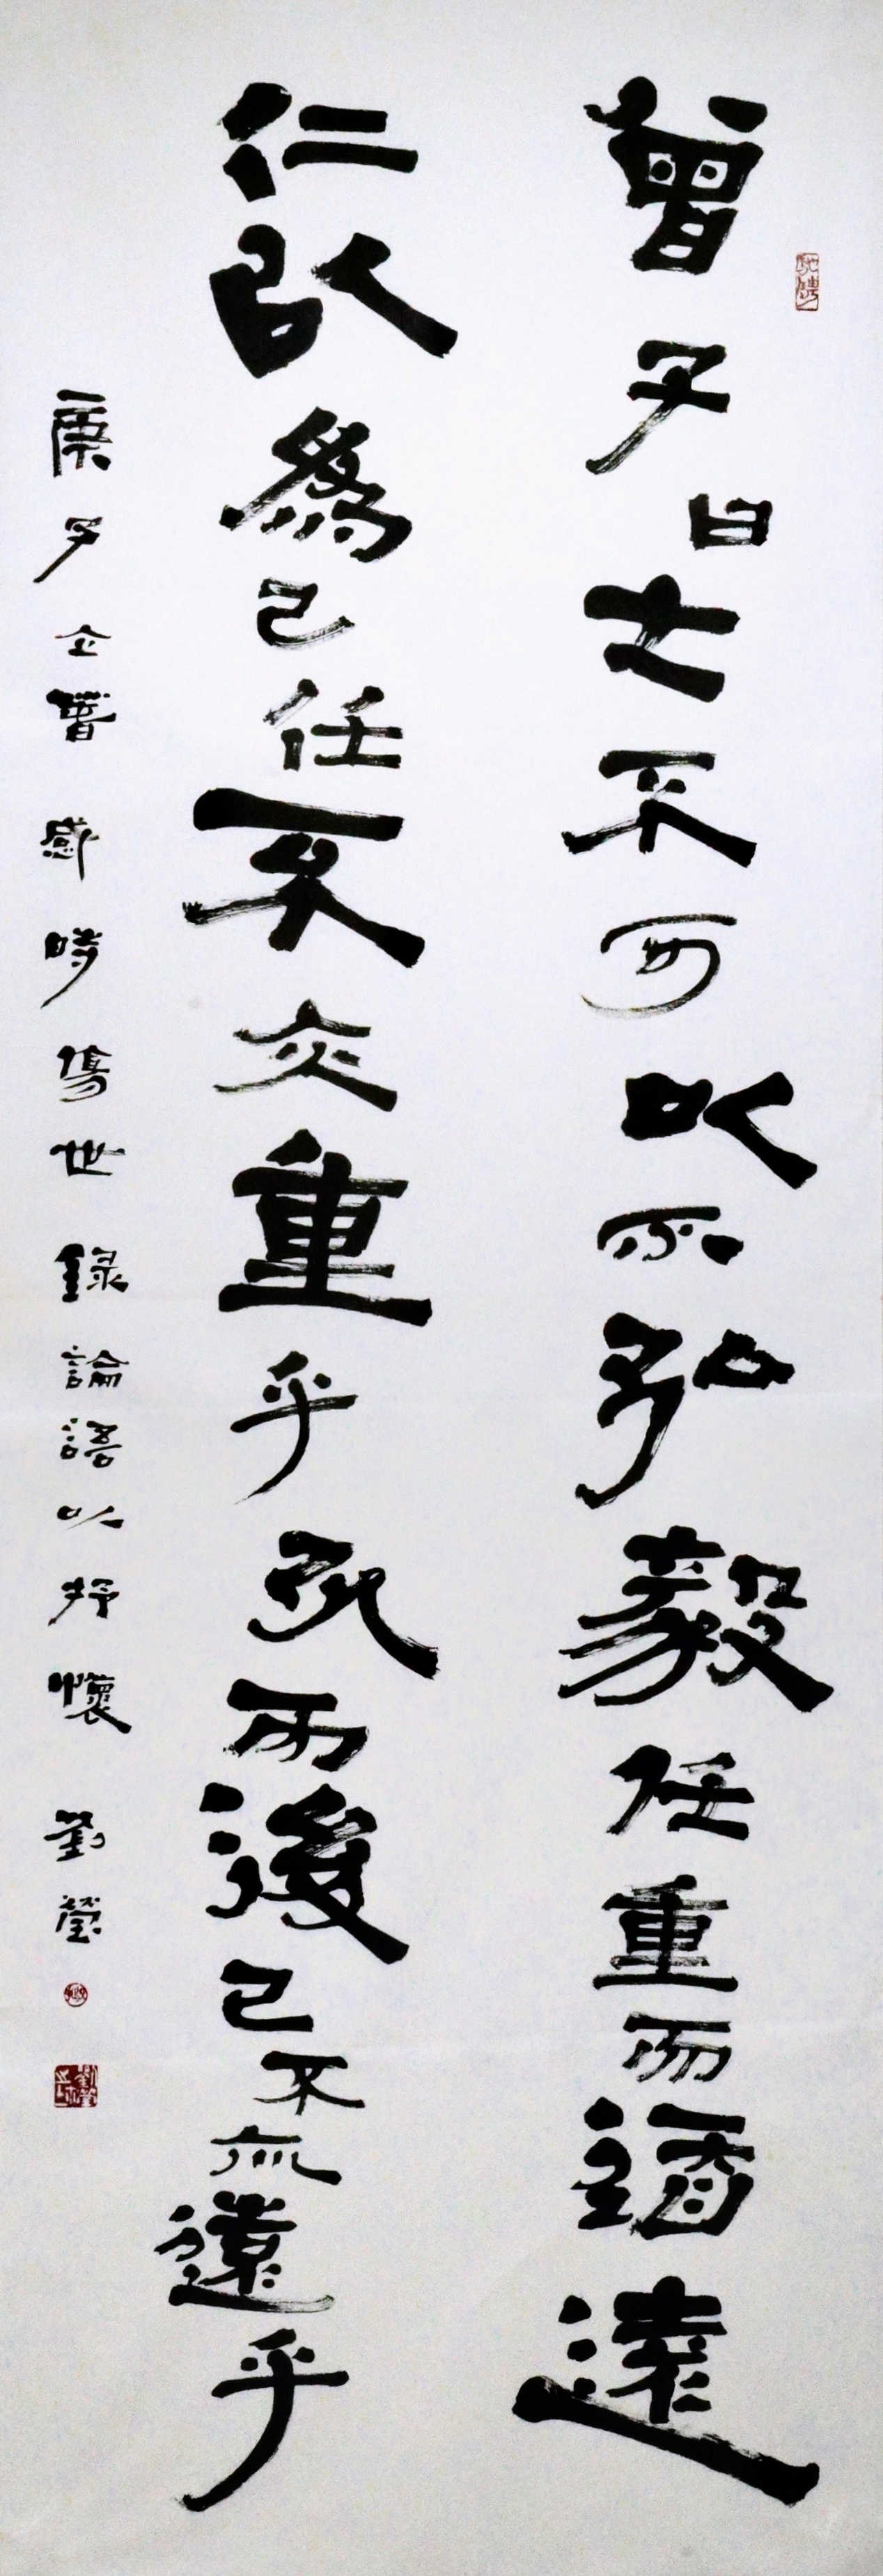 曾子曰士不可以不弘毅任重而道遠
仁以為己任不亦重乎死而後已不亦遠乎
庚子立春感時傷世錄論語以抒懷劉瑩